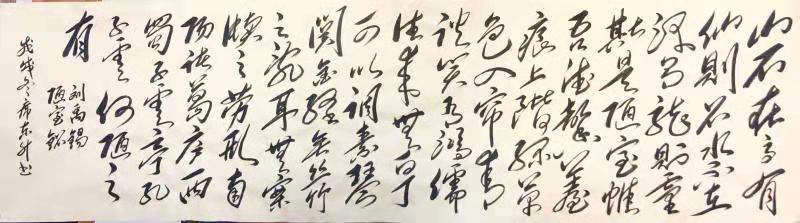 山不在高有
仙则名水不在
深有龙则灵
斯是陋室惟
吾德馨苔
痕上阶绿草
色入帘青
谈笑有鸿儒
往来無白丁
可以调素琴
阅金经无丝竹
之乱耳無案
牍之劳形南
阳诸葛庐西
蜀子云亭孔
子云何陋之
有
刘禹锡
陋室铭
戊戌冬席东升书